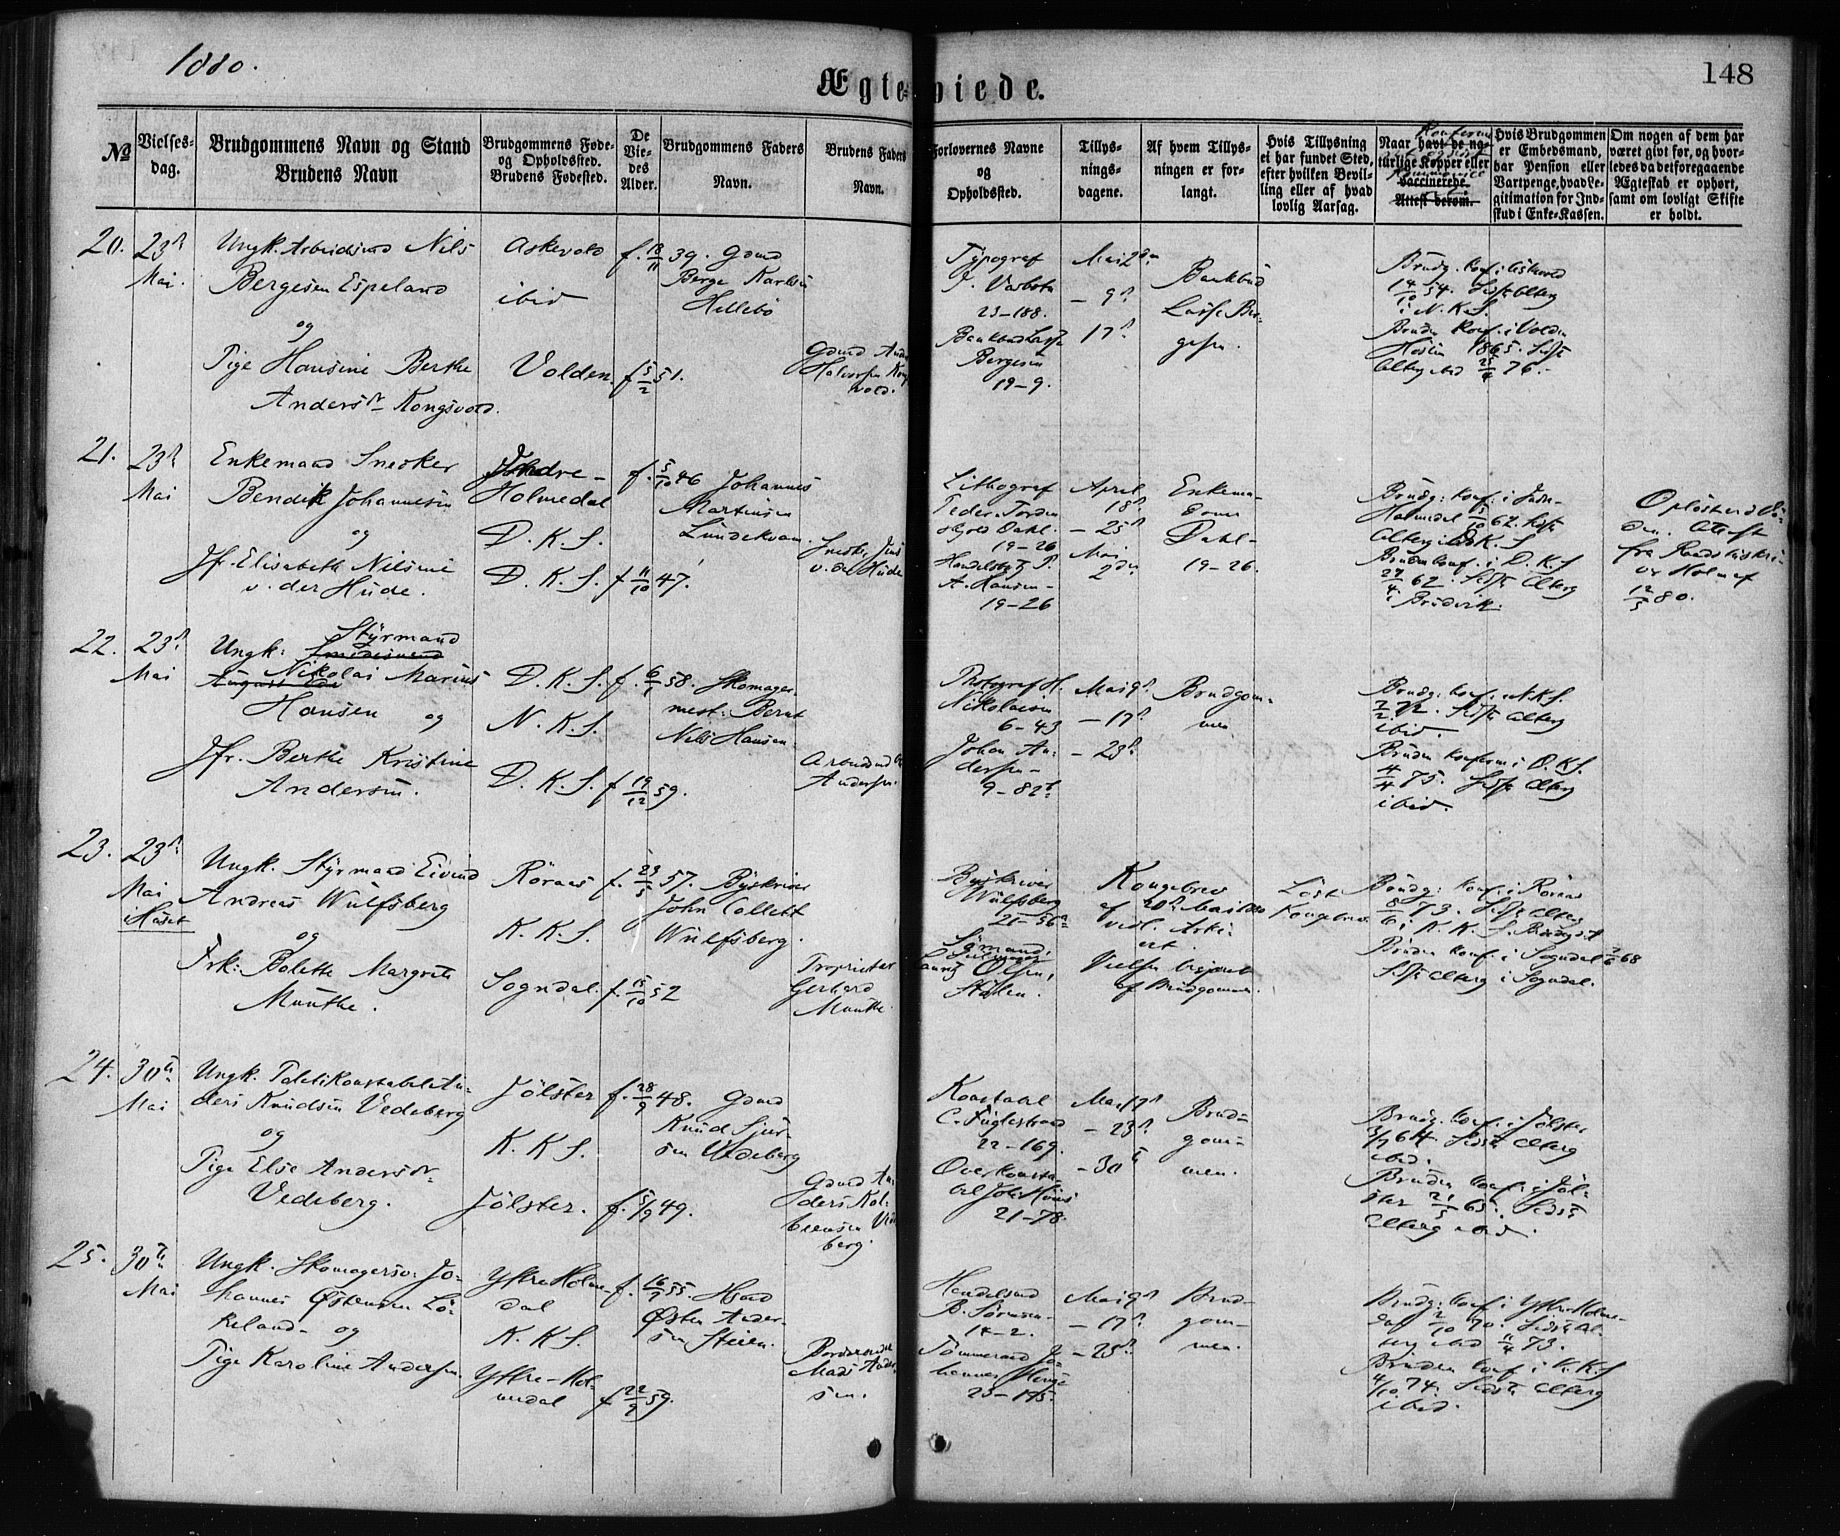 1880.
148
Ægteviede.
No
Vielses-
dag.
Brudgommens Navn og Stand
Brudens Navn
Brudgommens Føde-
og Opholdssted.
Brudens Fødested.
De
Vie-
des
Alder.
Brudgommens Faders
Navn.
Brudens Faders
Navn.
Forlovernes Navne
og
Opholdssted.
Tillys-
nings-
dagene.
Af hvem Tillys-
ningen er for-
langt.
Hvis Tillysning
ei har fundet Sted,
efter hvilken Bevil-
ling eller af hvad
lovlig Aarsag.
Naar havt de na-
türlige Kopper eller
vaccinerede.
Attest derom.
Hvis Brudgommen
er Embedsmand,
har Pension eller
Vartpenge, hvad Le-
gitimation for Ind-
skud i Enke-Kassen.
Om nogen af dem har
været givt før, og hvor-
ledes da det foregaaende
Ægteskab er ophørt,
samt om lovligt Skifte
er holdt.
20. 23d
Mai.
Ungk. Arbeidsmd Nils
Bergesen Espeland
og
Pige Hansine Berthe
Andersdr Kongsvold.
Askevold
ibid
Volden.
f. 18/11 39.
f. 5/2 51.
Gdmd
Berge Karlsen
Hellebø
Gdmd Anders
Halvorsen Kong
vold.
Typograf
J. Varbo
23-188.
Bankbud Lasse
Bergesen
19-9.
Mai 2den
- 9d
17d
Bankbud
Lasse Ber-
gesen.
Brudg. konf. i Askevold
14/10 54. Sidst Alterg
i N.K.S.
Bruden konf. i Volden
Høsten 1865. Sidst
Alterg ibid 25/4 76.
21. 23d
Mai
Enkemand Snedker
Bendik Johannesen
og
Jfr. Elisabeth Nilsine
v. der Hude.
Indre-
Holmedal
D. K. S.
D. K. S.
f. 5/10 46
f. 11/10 47.
Johannes
Martinsen
Lundekvam.
Snedk. Jens
v. der Hude
Lithograf
Peder Torden
skjold Dahl.
19-26
Handelsbtj. P.
A. Hansen-
19-26
April
18d
- 25d
Mai
2den
Enkema-
Dahl-
19-26.
Brudg: konf: i Indr-
Holmedal 62. Sidst
Alterg i D.K.S
Bruden konf. i D.K.S
27/4 62. Sidst Alterg
i Bruvik.
12/5 80.
22. 23d
Mai
Ungk: Styrmand
Nikolai Marius
Hansen og
Jfr. Berthe Kristine
Andersen.
D. K. S.
N. K. S.
D. K. S.
f. 6/1 58.
f. 19/12 59.
Skomager-
mest. Bernt
Nils Hansen.
Andersen.
Photograf H.
Nikolaisen
6-43
Johan An-
dersen-
9-82b
Mai 9d
- 17d
- 23d
Brudgom-
men
Brudg: konf. i N.K.S.
7/2 72. Sidst Alterg
ibid.
Bruden konferm i D.K.S.
4/4 75. Sidst Alterg
ibid.
23. 23d
Mai
i Huset
Ungk. Styrmand Eivind
Andreas Wulfsberg
og
Frk: Bolette Margrete
Munthe.
Röraas
K. K. S.
Sogndal.
f. 29/5 57.
f. 15/10 52
Byskriver
John Collett
Wulfsberg.
Proprietær
Gerhard
Munthe.
Byskriver
Wulfsberg
21-56a
Sömand,
Lauritz Olsen,
Stølen.
Kongebrev
af 20d Mai 1880
vedl. Arki-
vet.
Vielsen begjært
af Brudgommen.
Löst
Kongebrev
Brudg: konf. i Röraas
8/6 73. Sidst Alterg
i K. K. S.
Bruden konf. i Sogndal 7/6 68
Sidst Alterg i Sogndal.
24. 30te
Mai
Ungk. Politikonstabel An-
ders Knudsen Vedeberg
og
Pige Else Andersdr
Vedeberg.
Jölster
K. K. S.
Jölster.
f. 28/9 48.
f. 5/9 49.
Gdmd
Knud Sjur-
sen Vedeberg
Gdmd An-
ders Kol-
beensen Vede
berg.
Konstabl
C. Fuglestrand
22-169.
Overkonsta-
bel Johs Mons
21-78.
Mai 17d
- 23d
- 30te
Brud-
gom-
men.
Brudg. konf. i Jölster
3/7 64. Sidst Alterg
ibid.
Bruden konf. i Jöl-
ster 21/5 65. Sidst
Alterg ibid.
25. 30te
Mai
Ungk. Skomagersv: Jo-
hannes Østensen Lö-
keland- og
Pige Karoline Andersen
Yttre Holme-
dal
K. K. S.
Yttre-Hol-
medal
f. 16/9 55.
f. 22/9 59.
Hsmd
Østen Ander-
sen Steien.
Bordskriver
Mads Ander
sen.
Handelsmd
B. Sörensen-
14-2.
Tømmermd Jo-
hannes Monge
23-175.
Mai 9d
- 17d
- 23d
Brud-
gom-
men.
Brudg: konf i Yttre Holme-
dal 2/10 70. Sidst Al-
terg ibid 11/4 73.
Bruden konf. i K.K.S
4/10 74. Sidst Alterg
ibid.